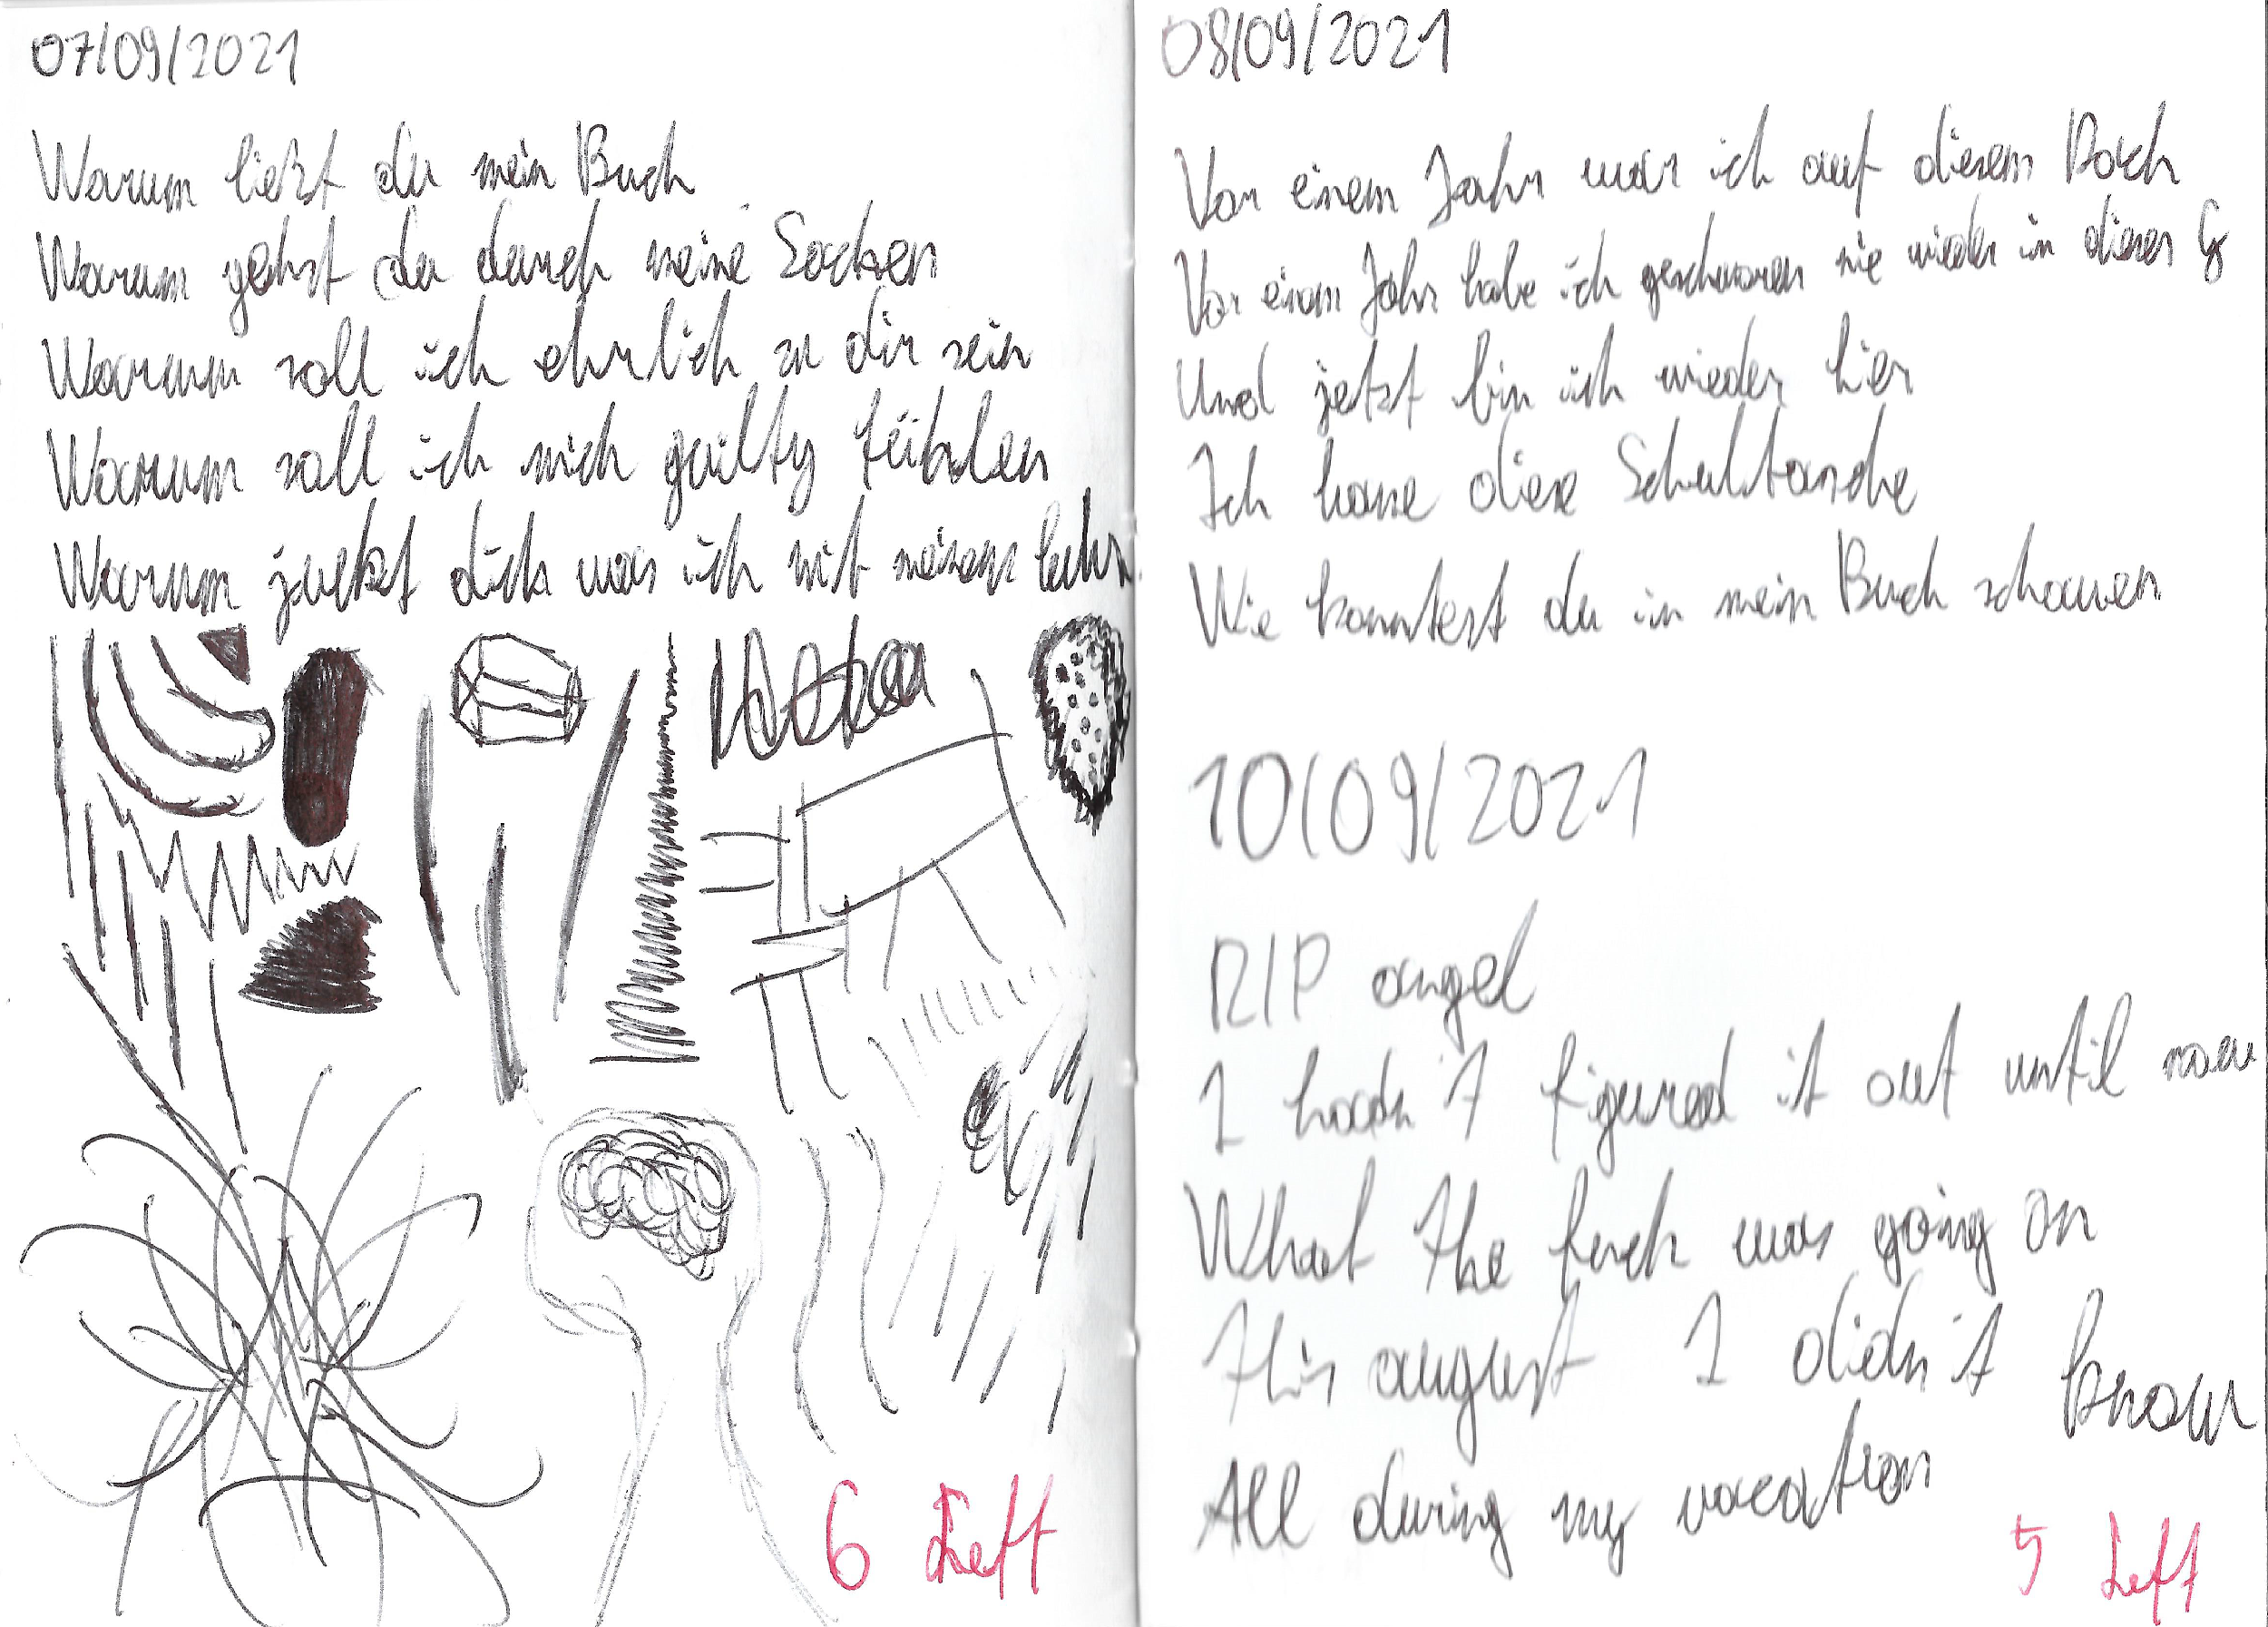 07/09/2021
Warum ließt du mein Buch
Warum gehst du durch meine Socken
Warum soll ich ehrlich zu dir sein
Warum soll ich mich guilty fühlen
Warum juckt dich was ich mit meinem
6 Left
08/09/2021
Vor einem Jahr war ich auf diesem Dach
Vor einem Jahr habe ich geschworen nie wieder in dieses G
Und jetzt bin ich wieder hier
Ich hasse diese Schultasche
Wie konntest du in mein Buch schauen
10/09/2021
RIP angel
I hadn't figured it out until now
What the fuck was going on
this august I didn't know
All during my vacation
5 Left